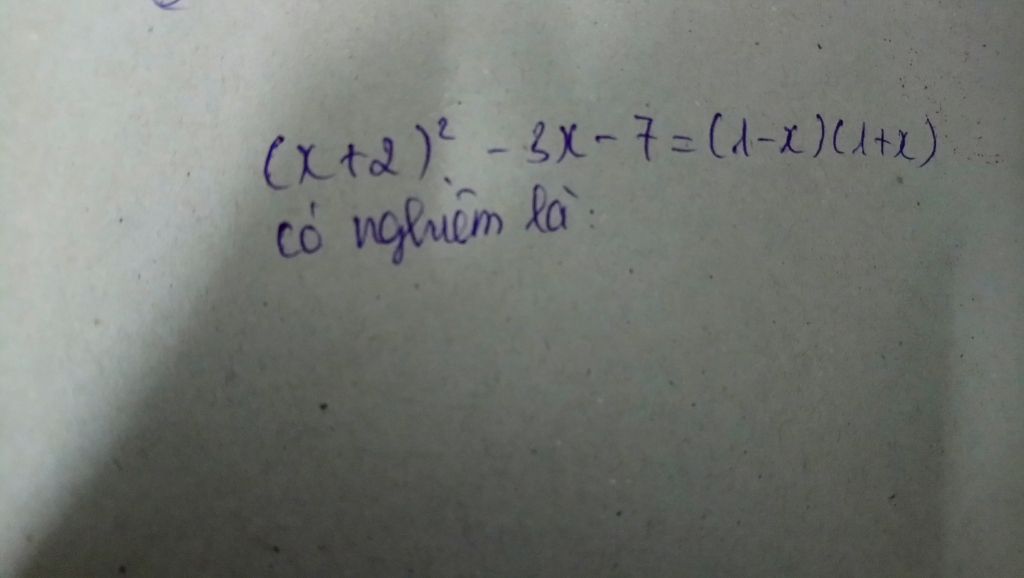 (x+2)² - 3x - 7 = (1-x)(1+x)
có nghiệm là: